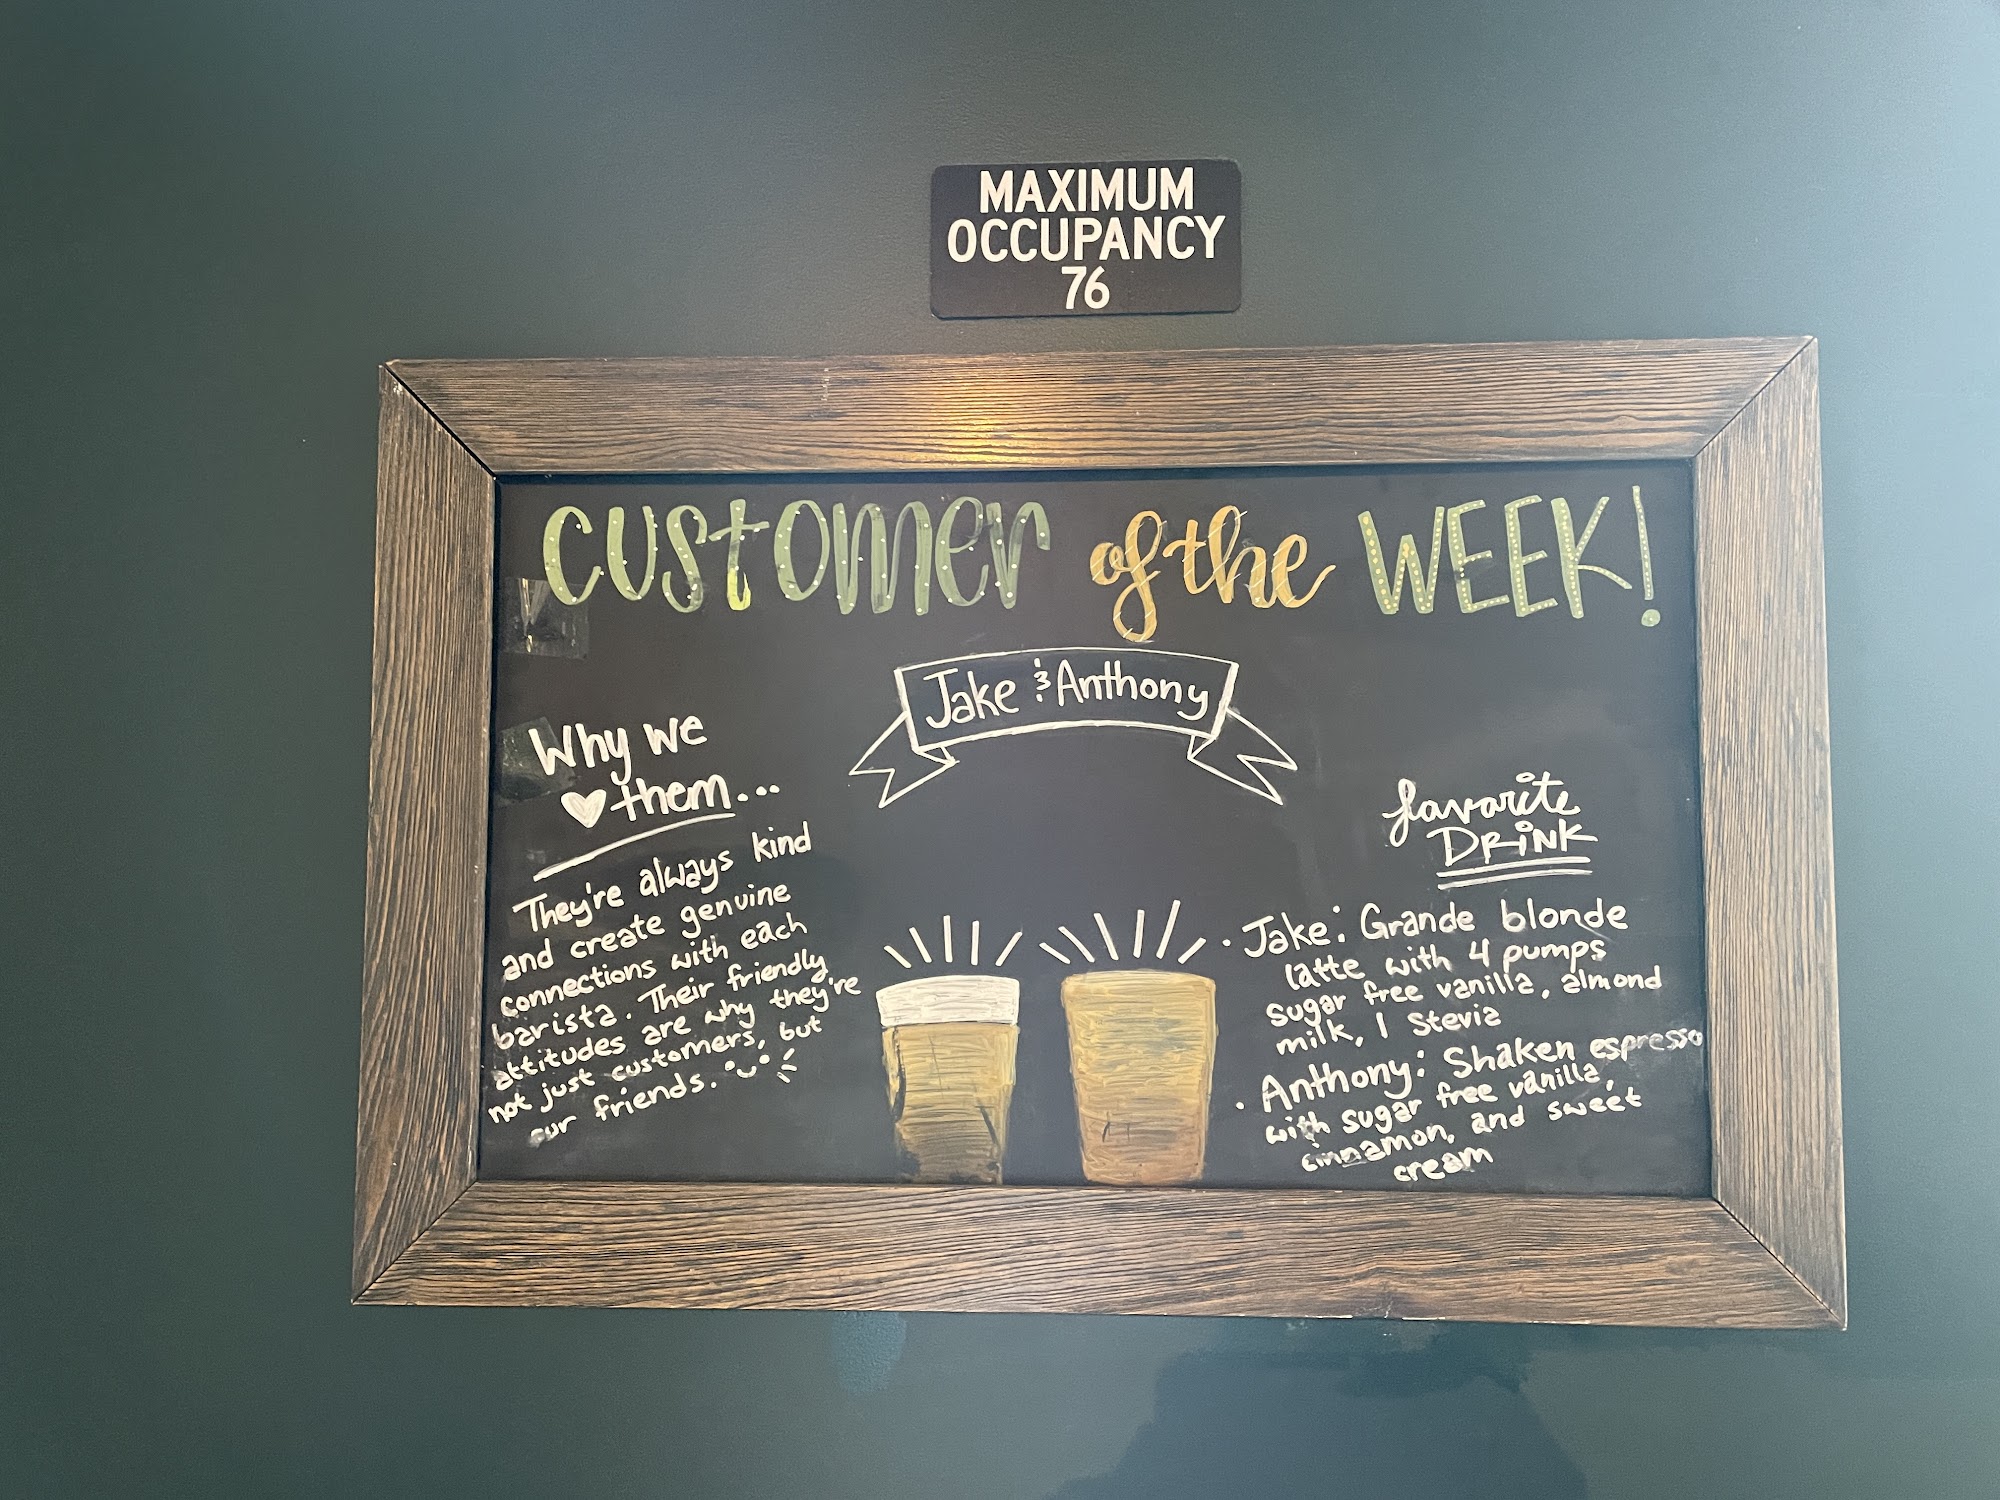 MAXIMUM
OCCUPANCY
76
CUSTOMER of the WEEK!
Jake & Anthony
Why we
♥ them...
They're always kind
and create genuine
connections with each
barista. Their friendly
attitudes are why they're
not just customers, but
our friends.
favorite
DRINK
• Jake: Grande blonde
latte with 4 pumps
sugar free vanilla, almond
milk, 1 Stevia
• Anthony: Shaken espresso
with sugar free vanilla,
cinnamon, and sweet
cream